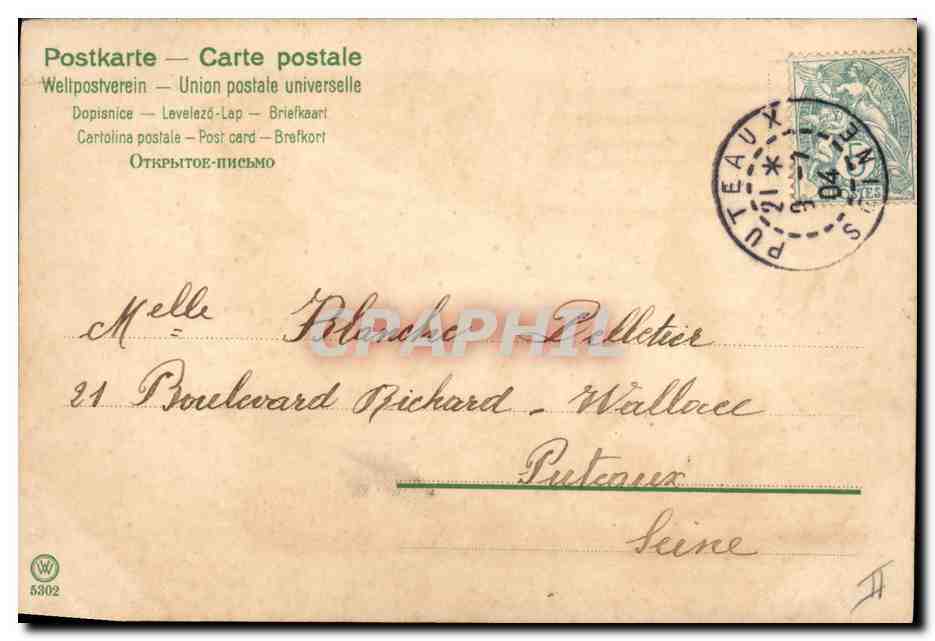 Postkarte — Carte postale
Weltpostverein — Union postale universelle
Dopisnice — Levelező-Lap — Briefkaart
Cartolina postale — Post card — Brefkort
Открытое-письмо
PUTEAUX SEINE
21 *
9 -1
04
5
POSTES
Melle Blanche Pelletier
CPAPHIL
21 Boulevard Richard - Wallace
Puteaux
Seine
W
5302
II